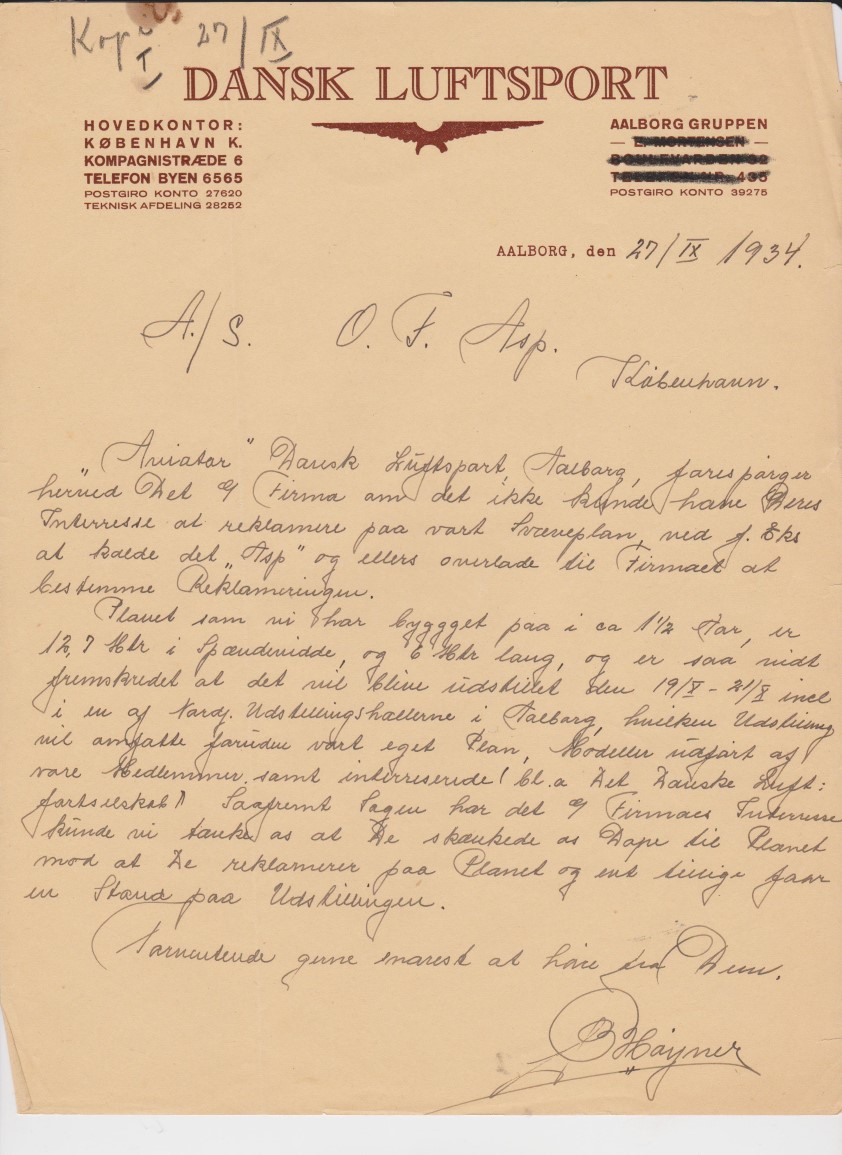 Kopi 27/IX
I
DANSK LUFTSPORT
HOVEDKONTOR:
KØBENHAVN K.
KOMPAGNISTRÆDE 6
TELEFON BYEN 6565
POSTGIRO KONTO 27620
TEKNISK AFDELING 28252
AALBORG GRUPPEN
— E. MORTENSEN —
BOULEVARDEN 32
TELEFON NR. 435
POSTGIRO KONTO 39275
AALBORG, den 27/IX 1934.
A./S. O. F. Asp.
København.
"Aviator" Dansk Luftsport, Aalborg, forespørger
herved Det Firma om det ikke kunde have Deres
Interresse at reklamere paa vort Svæveplan, ved f. Eks
at kalde det "Asp" og ellers overlade til Firmaet at
bestemme Reklameringen.
Planet som vi har byggget paa i ca 1½ Aar, er
12,7 Mtr i Spændevidde, og 6 Mtr lang, og er saa vidt
fremskredet at det vil blive udstillet den 19/X - 21/X incl
i en af Nordj. Udstillingshallerne i Aalborg, hvilken Udstilling
vil omfatte foruden vort eget Plan, Modeller udført af
vore Medlemmer samt interreserede (bl. a Det Danske Luft:
fartselskab) Saafremt Sagen har det Firmaes Interresse
kunde vi tænke os at De skænkede os Dope til Planet
mod at De reklamerer paa Planet og evt tillige faar
en Stand paa Udstillingen.
Forventende gerne snarest at høre fra Dem.
B Høyner